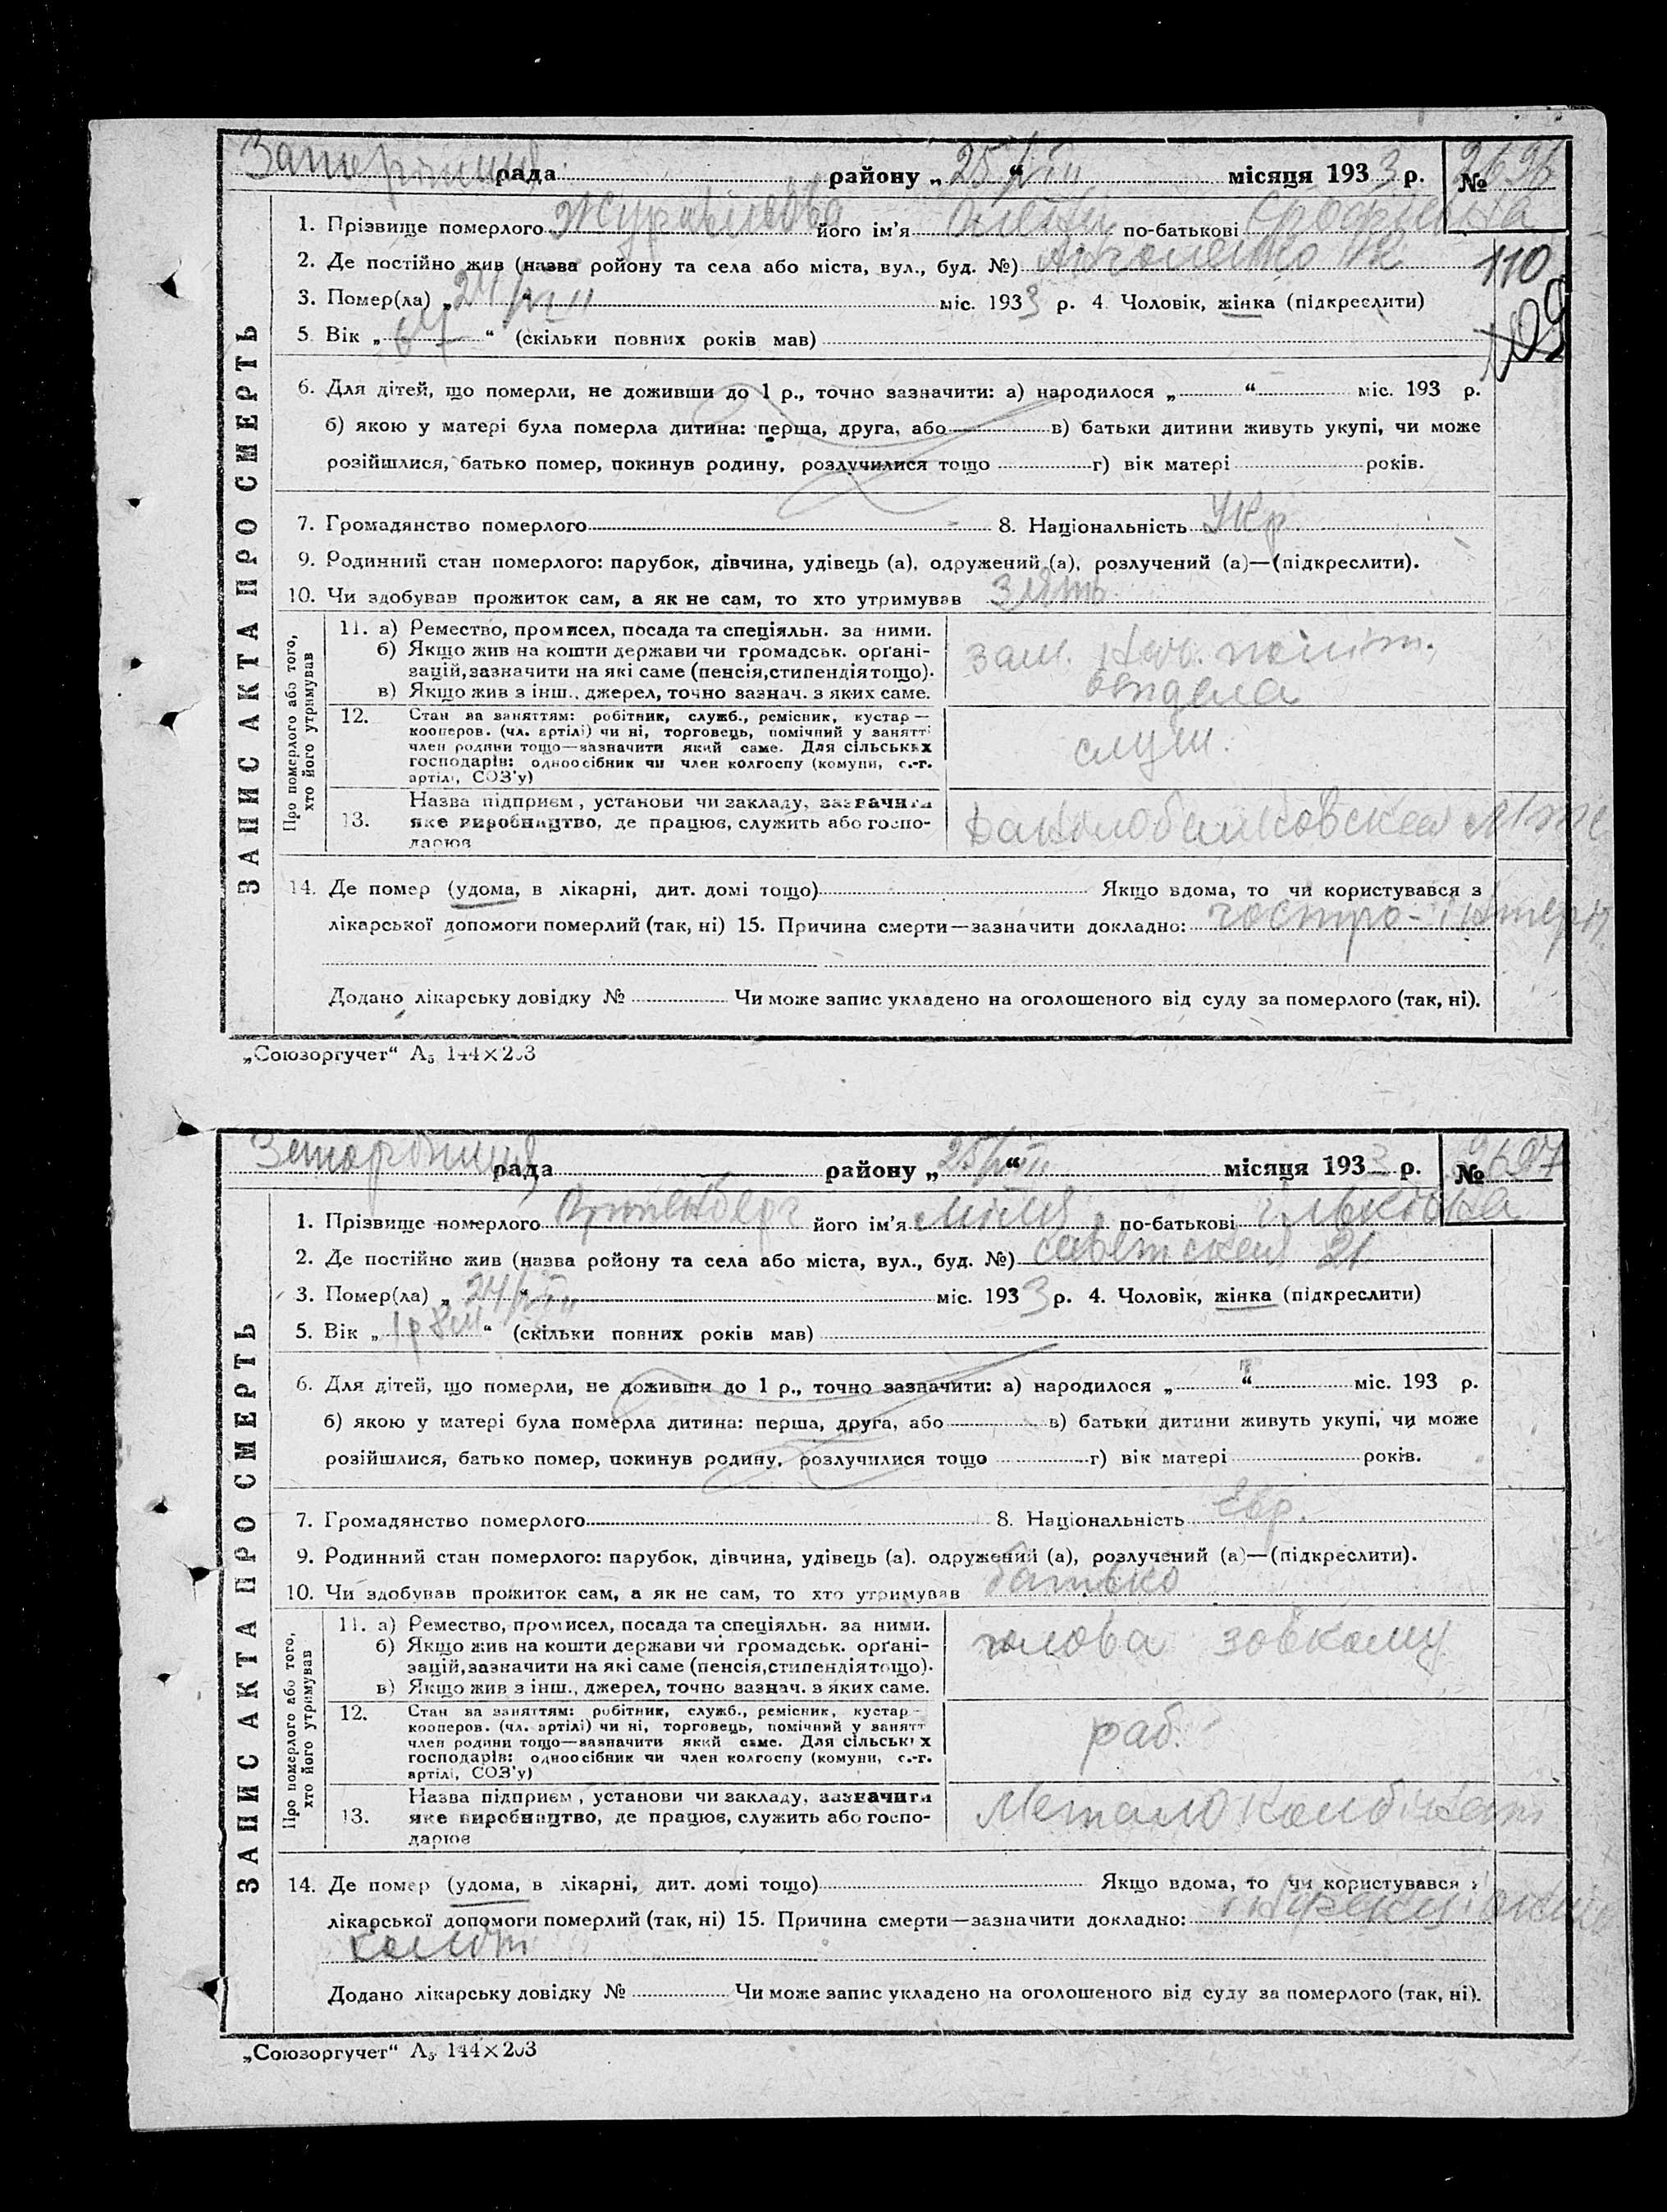 рада району „25/VIII“ місяця 1933 р. № 2696
1. Прізвище померлого його ім'я Олена по-батькові
2. Де постійно жив (назва ройону та села або міста, вул., буд. №)
110
3. Помер(ла) „24/VIII“ міс. 1933 р. 4. Чоловік, жінка (підкреслити)
109
5. Вік „64“ (скільки повних років мав)
6. Для дітей, що померли, не доживши до 1 р., точно зазначити: а) народилося „ “ міс. 193 р.
б) якою у матері була померла дитина: перша, друга, або в) батьки дитини живуть укупі, чи може
розійшлися, батько помер, покинув родину, розлучилися тощо г) вік матері років.
7. Громадянство померлого 8. Національність Укр
9. Родинний стан померлого: парубок, дівчина, удівець (а), одружений (а), розлучений (а)—(підкреслити).
10. Чи здобував прожиток сам, а як не сам, то хто утримував зять
ЗАПИС АКТА ПРО СМЕРТЬ
Про померлого або того,
хто його утримував
11. а) Ремество, промисел, посада та спеціяльн. за ними.
б) Якщо жив на кошти держави чи громадськ. орґані-
зацій, зазначити на які саме (пенсія, стипендія тощо).
в) Якщо жив з інш., джерел, точно зазнач. з яких саме.
зам. нач. політ.
отдела
12. Стан за заняттям: робітник, служб., ремісник, кустар —
кооперов. (чл. артілі) чи ні, торговець, помічний у занятті
член родини тощо—зазначити який саме. Для сільських
господарів: одноосібник чи член колгоспу (комуни, с.-г.
артілі, СОЗ'у)
служ.
13. Назва підприєм, установи чи закладу, зазначити
яке виробництво, де працює, служить або госпо-
дарює
МТС
14. Де помер (удома, в лікарні, дит. домі тощо) Якщо вдома, то чи користувався з
лікарської допомоги померлий (так, ні) 15. Причина смерти—зазначити докладно: гостро-
Додано лікарську довідку № Чи може запис укладено на оголошеного від суду за померлого (так, ні).
„Союзоргучет“ А₅ 144×203
рада району „25/VIII“ місяця 1933 р. № 2697
1. Прізвище померлого його ім'я по-батькові
2. Де постійно жив (назва ройону та села або міста, вул., буд. №) 21
3. Помер(ла) „24/VIII“ міс. 1933 р. 4. Чоловік, жінка (підкреслити)
5. Вік „1р 8м“ (скільки повних років мав)
6. Для дітей, що померли, не доживши до 1 р., точно зазначити: а) народилося „ “ міс. 193 р.
б) якою у матері була померла дитина: перша, друга, або в) батьки дитини живуть укупі, чи може
розійшлися, батько помер, покинув родину, розлучилися тощо г) вік матері років.
7. Громадянство померлого 8. Національність Євр.
9. Родинний стан померлого: парубок, дівчина, удівець (а), одружений (а), розлучений (а)—(підкреслити).
10. Чи здобував прожиток сам, а як не сам, то хто утримував батько
ЗАПИС АКТА ПРО СМЕРТЬ
Про померлого або того,
хто його утримував
11. а) Ремество, промисел, посада та спеціяльн. за ними.
б) Якщо жив на кошти держави чи громадськ. орґані-
зацій, зазначити на які саме (пенсія, стипендія тощо).
в) Якщо жив з інш., джерел, точно зазнач. з яких саме.
голова завкому
12. Стан за заняттям: робітник, служб., ремісник, кустар-
кооперов. (чл. артілі) чи ні, торговець, помічний у занятт
член родини тощо—зазначити який саме. Для сільських
господарів: одноосібник чи член колгоспу (комуни, с.-г.
артілі, СОЗ'у)
раб.
13. Назва підприєм, установи чи закладу, зазначити
яке виробництво, де працює, служить або госпо-
дарює
Металокомбінат
14. Де помер (удома, в лікарні, дит. домі тощо) Якщо вдома, то чи користувався з
лікарської допомоги померлий (так, ні) 15. Причина смерти—зазначити докладно:
коліт
Додано лікарську довідку № Чи може запис укладено на оголошеного від суду за померлого (так, ні).
„Союзоргучет“ А₅ 144×203